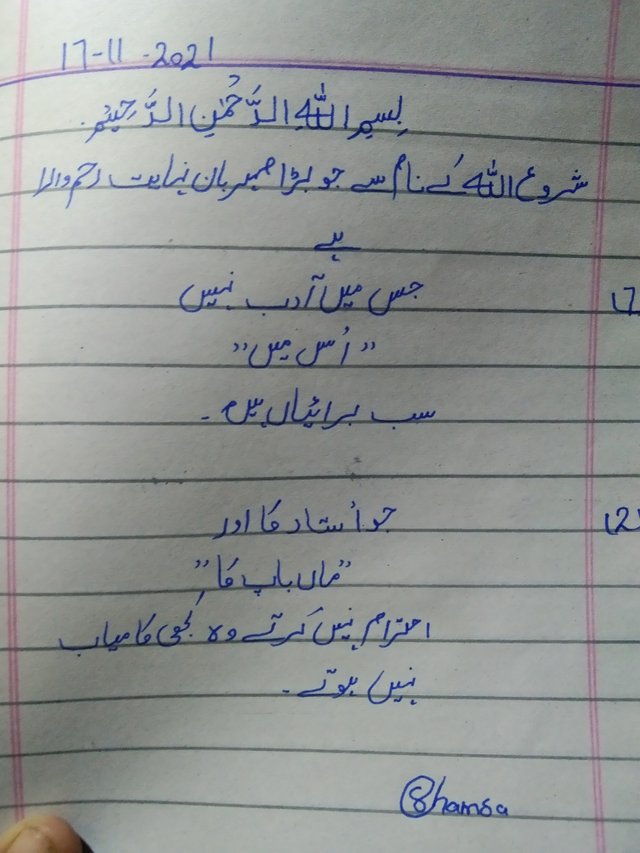 17-11-2021
بِسمِ اللّٰهِ الرَّحْمٰنِ الرَّحِیْمِ
شروع اللّٰہ کے نام سے جو بڑا مہربان نہایت رحم والا
ہے
(1) جس میں آدب نہیں
"اُس میں"
سب برائیاں ہیں۔
(2) جو اُستاد کا اور
"ماں باپ کا"
احترام نہیں کرتے وہ کبھی کامیاب
نہیں ہوتے۔
@hamsa